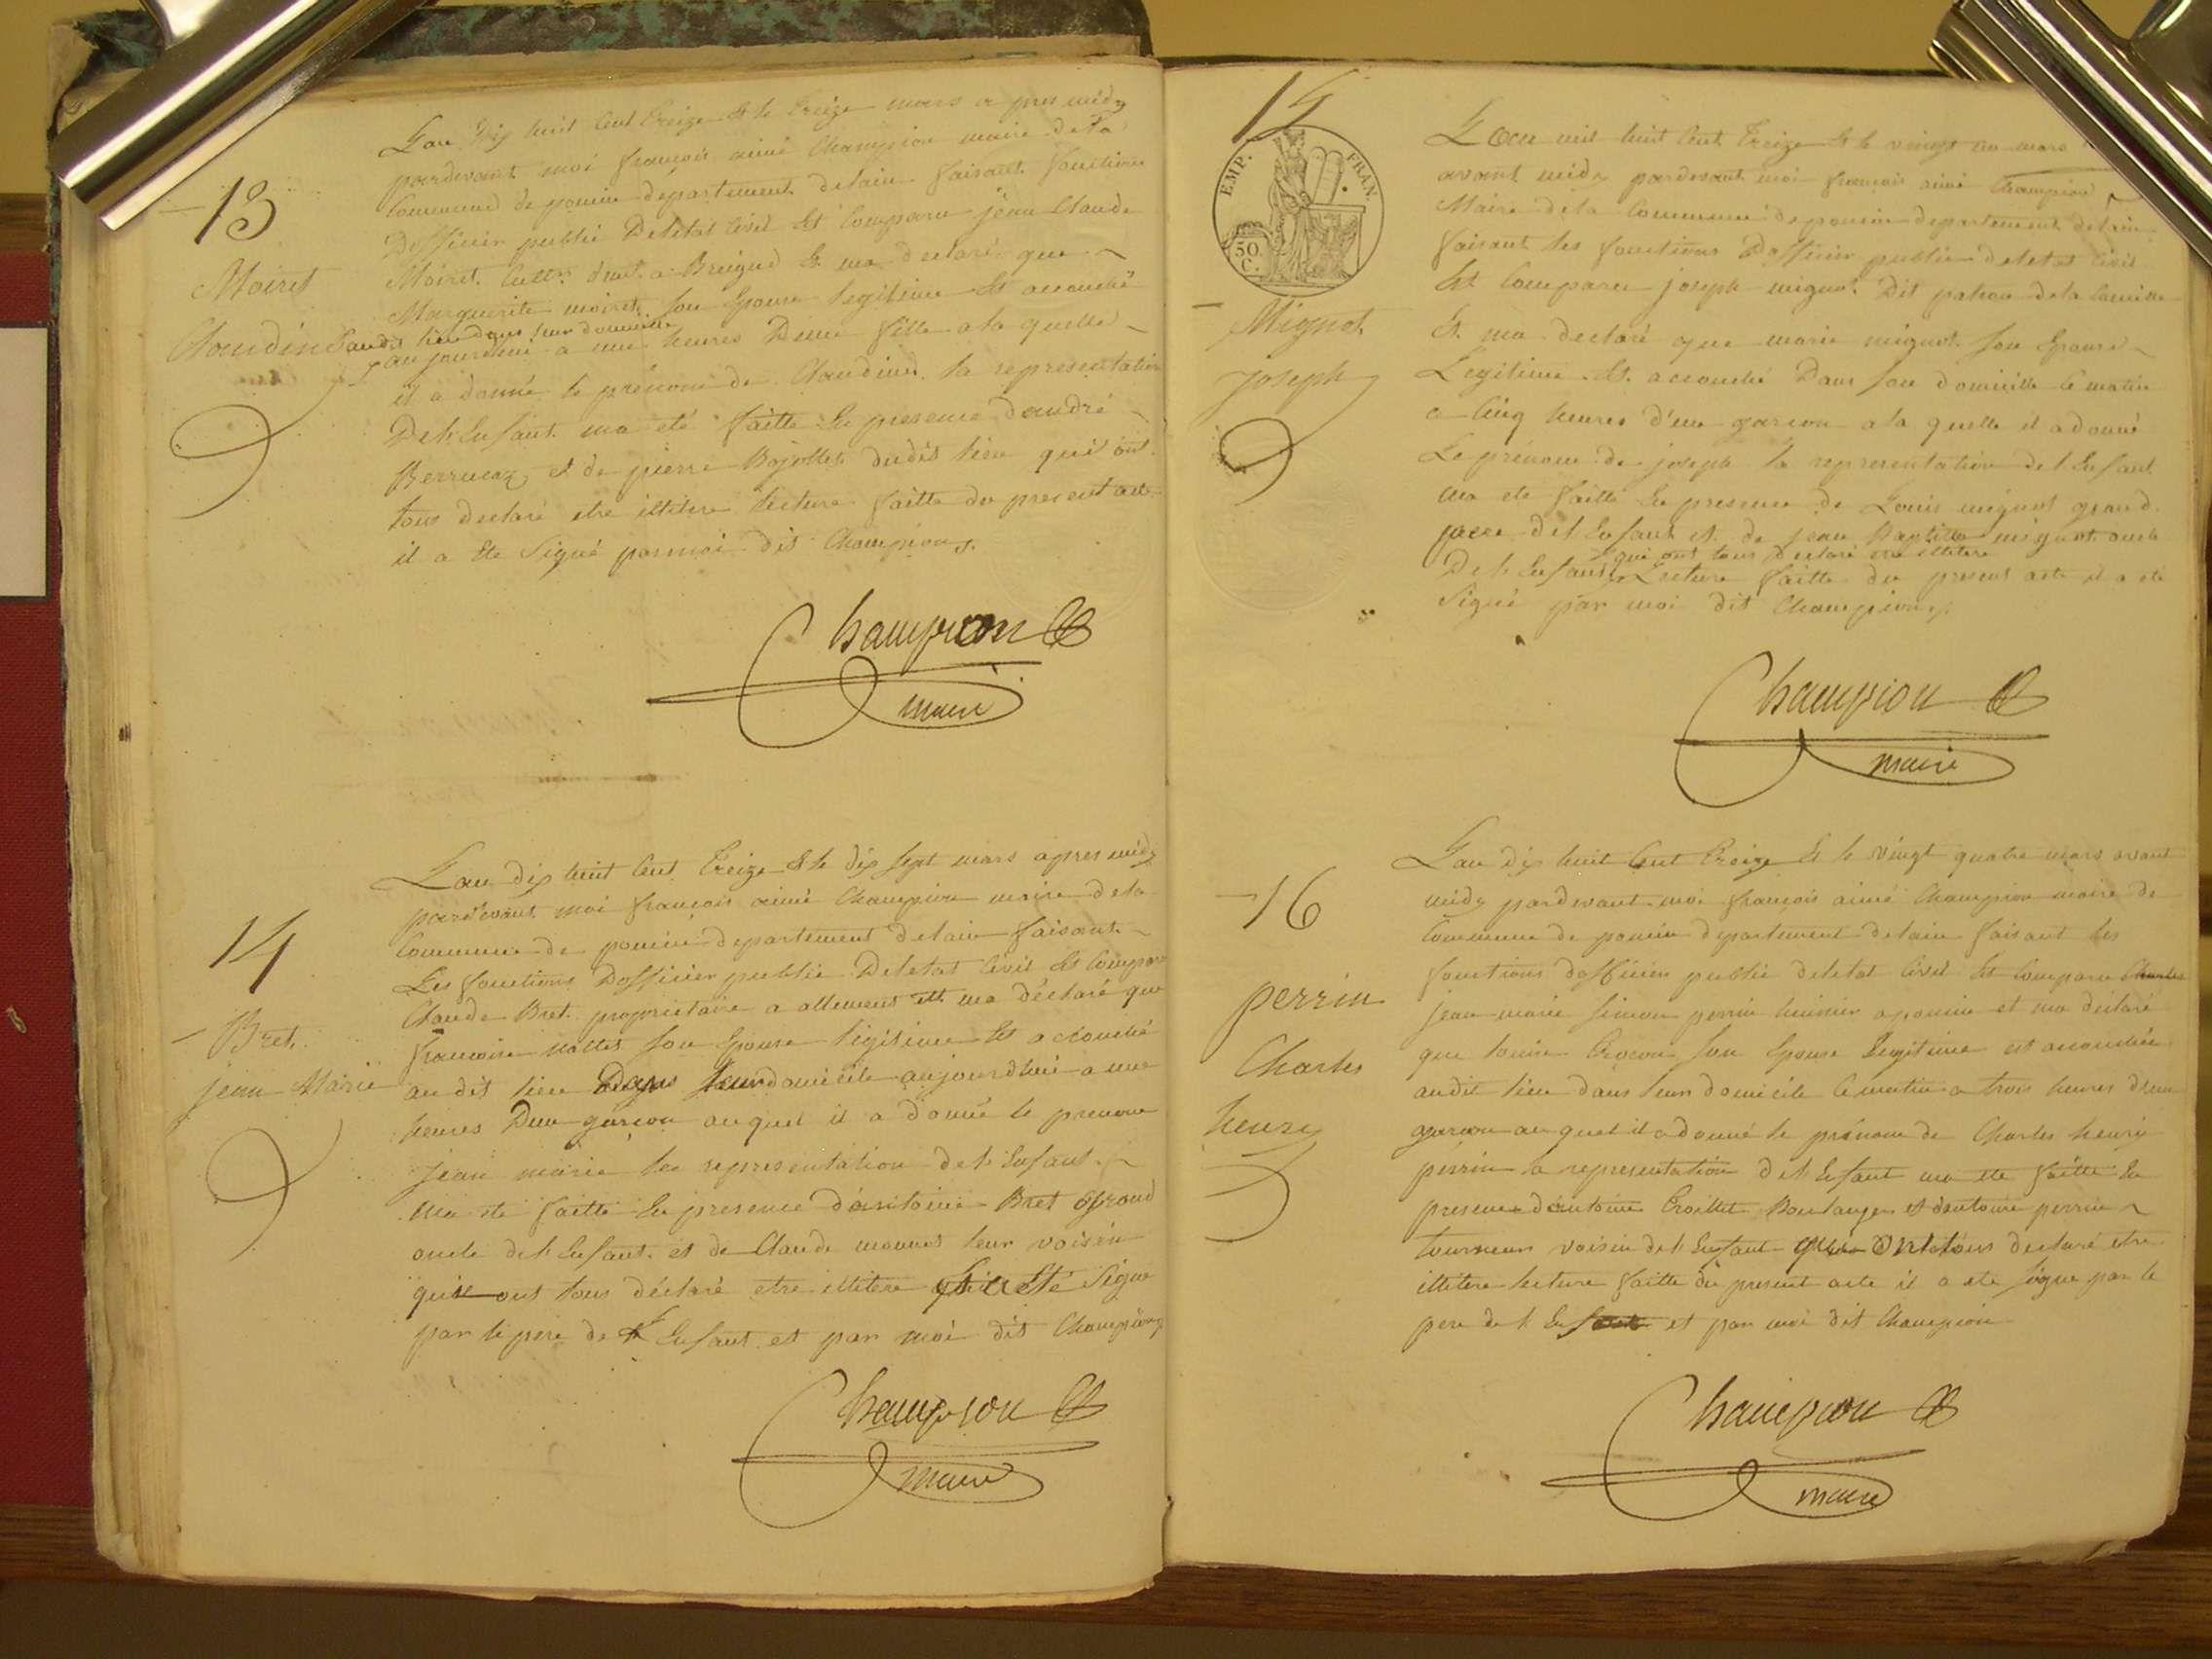 13
Moiret
Claudine
Lan Dix huit Cent Treize Et le Treize mars a pres midy
pardevant moi françois aimé Champion maire de la
Commune de poncin departement delain faisant fonctions
Dofficier public Deletat Civil Est Comparu jean Claude
Moiret Cultr demt a Breignes Et ma declaré que
Marguerite moiret son Epouse legitime Est accouché
audit lieu dans leur domicille
aujourdhui a une heures Dune fille a la quelle
il a donné le prénom de Claudine la representation
Del Enfant ma eté faitte En presence dandré
Berrucaz et de pierre Bojollet dudit lieu qui ont
tous declaré etre illitere lecture faitte du present acte
il a Ete Signé par moi dit Champion
Champion
maire
14
Bret
jean Marie
Lan dix huit Cent Treize Et le dix sept mars apres midy
pardevant moi françois aimé Champion maire de la
Commune de poncin departement delain faisant
Les fonctions Dofficier public Deletat Civil Est Comparu
Claude Bret propriétaire a allement Et ma déclaré que
francoise mottet son Epouse legitime Est accouché
au dit lieu Dans leur domicile aujourdhui a une
heures Dun garcon auquel il a donné le prenom
jean marie la representation del Enfant
Ma ete faitte En presence dantoine Bret grand
oncle del Enfant et de Claude monnet leur voisin
qui ont tous déclaré etre illitere il a Eté Signé
par le pere de L Enfant et par moi dit Champion
Champion
maire
15
EMP. FRAN.
50 C.
Mignot
joseph
Lan mil huit Cent Treize Et le vingt un mars
avant midy pardevant moi françois aimé Champion
Maire dela Commune de poncin departement delain
faisant les fonctions Dofficier public deletat Civil
Est Comparu joseph mignot Dit patron dela
Et ma declaré que marie mignot son Epouse
Legitime Est accouché Dans son domicille Ce matin
a Cinq heures d'un garcon a la quelle il a donné
Le prénom de joseph la representation del Enfant
ma ete faitte En presence de Louis mignot grand
pere del Enfant et de jean Baptiste mignot oncle
qui ont tous declaré etre illitere
Del Enfant Lecture faitte du present acte il a eté
Signé par moi dit Champion
Champion
maire
16
perrin
Charles
henry
Lan dix huit Cent Treize Et le vingt quatre mars avant
midy pardevant moi françois aimé Champion maire de
Commune de poncin departement delain faisant les
fonctions dofficier public deletat Civil Est Comparu Charles
jean marie simon perrin huissier a poncin et ma declaré
que louise Crocon son Epouse Legitime est accouchée
audit lieu dans leur domicile Ce matin a trois heures dun
garcon au quel il a donné le prénom de Charles henry
perrin la representation del Enfant ma ete faitte En
presence dantoine Croillet Boulanger et dantoine perrin
tourneur voisin del Enfant qui ont tous declaré etre
illitere lecture faitte du present acte il a ete signé par le
pere de l Enfant et par moi dit Champion
Champion
maire